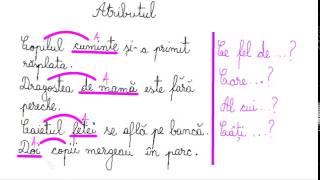 Atributul
A
Copilul cuminte și-a primit
răsplata.
A
Dragostea de mamă este fără
pereche.
A
Caietul fetei se află pe bancă.
A
Doi copii mergeau în parc.
Ce fel de ...?
Care ...?
Al cui ...?
Câți ...?